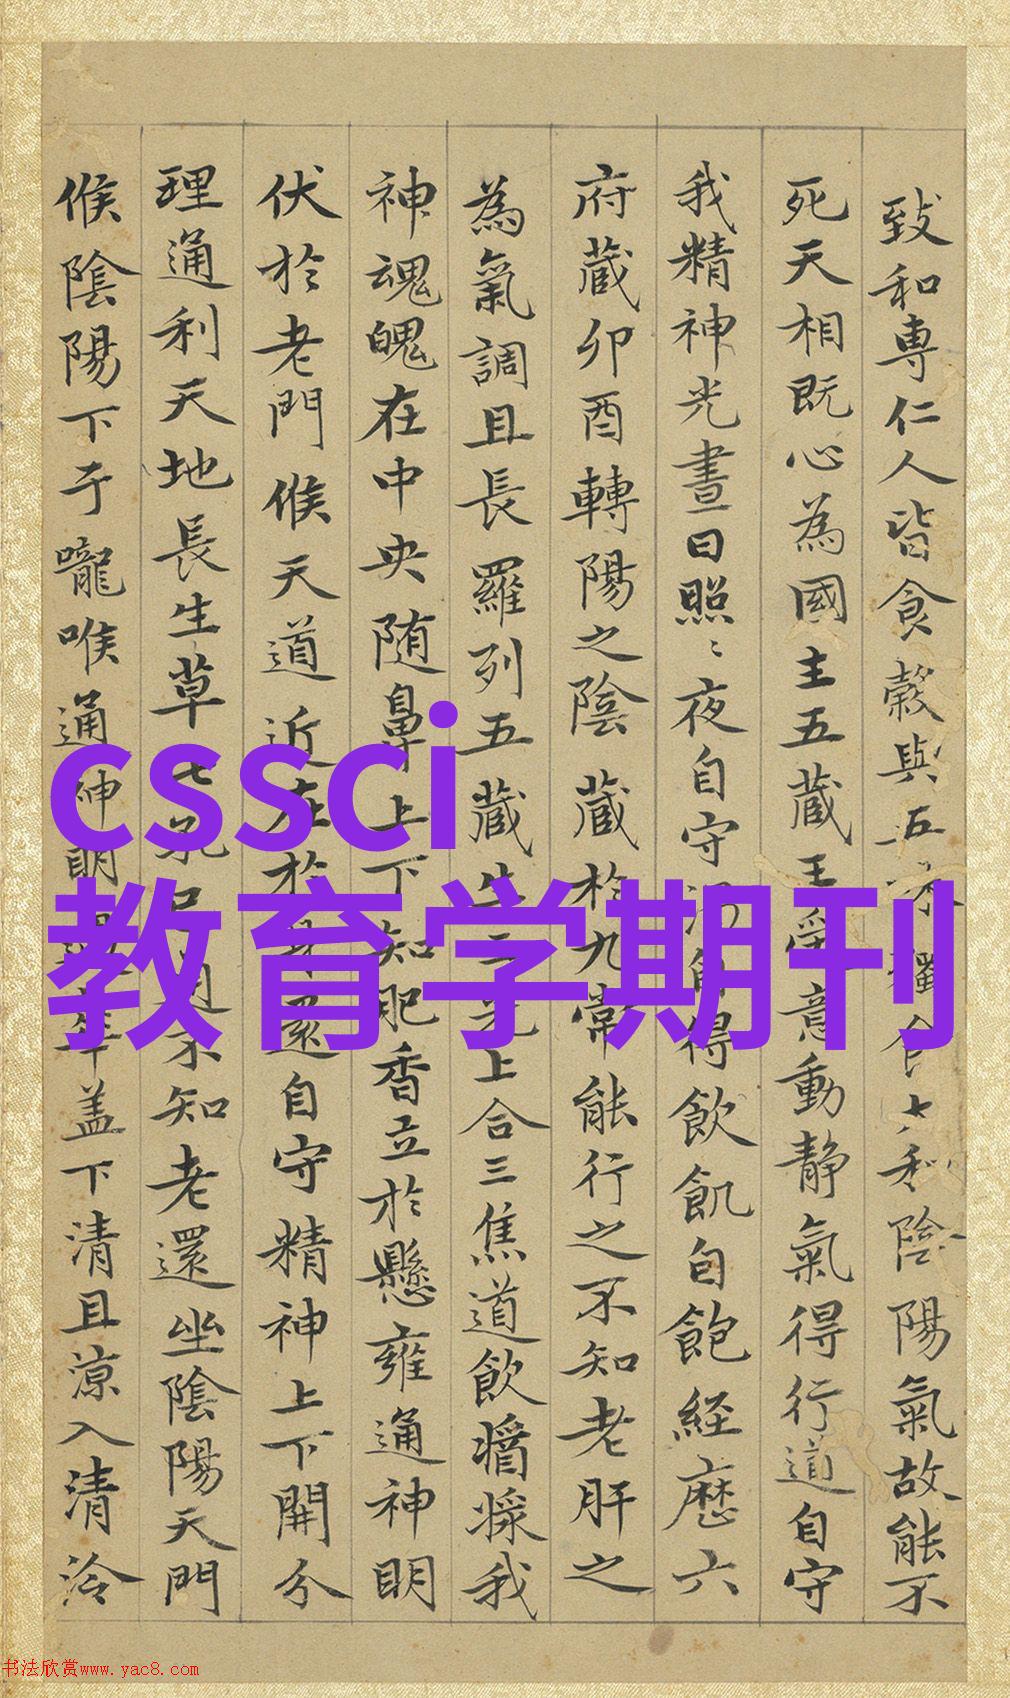 致和專仁人皆食穀與五味獨食太和陰陽氣故能不
死天相既心為國主五藏王受意動静氣得行道自守
我精神光晝日照〻夜自守渴自得飲飢自飽経歷六
府藏卯酉轉陽之陰藏於九常能行之不知老肝之
為氣調且長羅列五藏生三光上合三焦道飲醬漿我
神魂魄在中央随鼻上下知肥香立於懸雍通神明
伏於老門候天道近在於身還自守精神上下開分
理通利天地長生草七孔已通不知老還坐陰陽天門
候陰陽下于嚨喉通神明過華盖下清且涼入清泠
cssci
教育学期刊
书法欣赏www.yac8.com